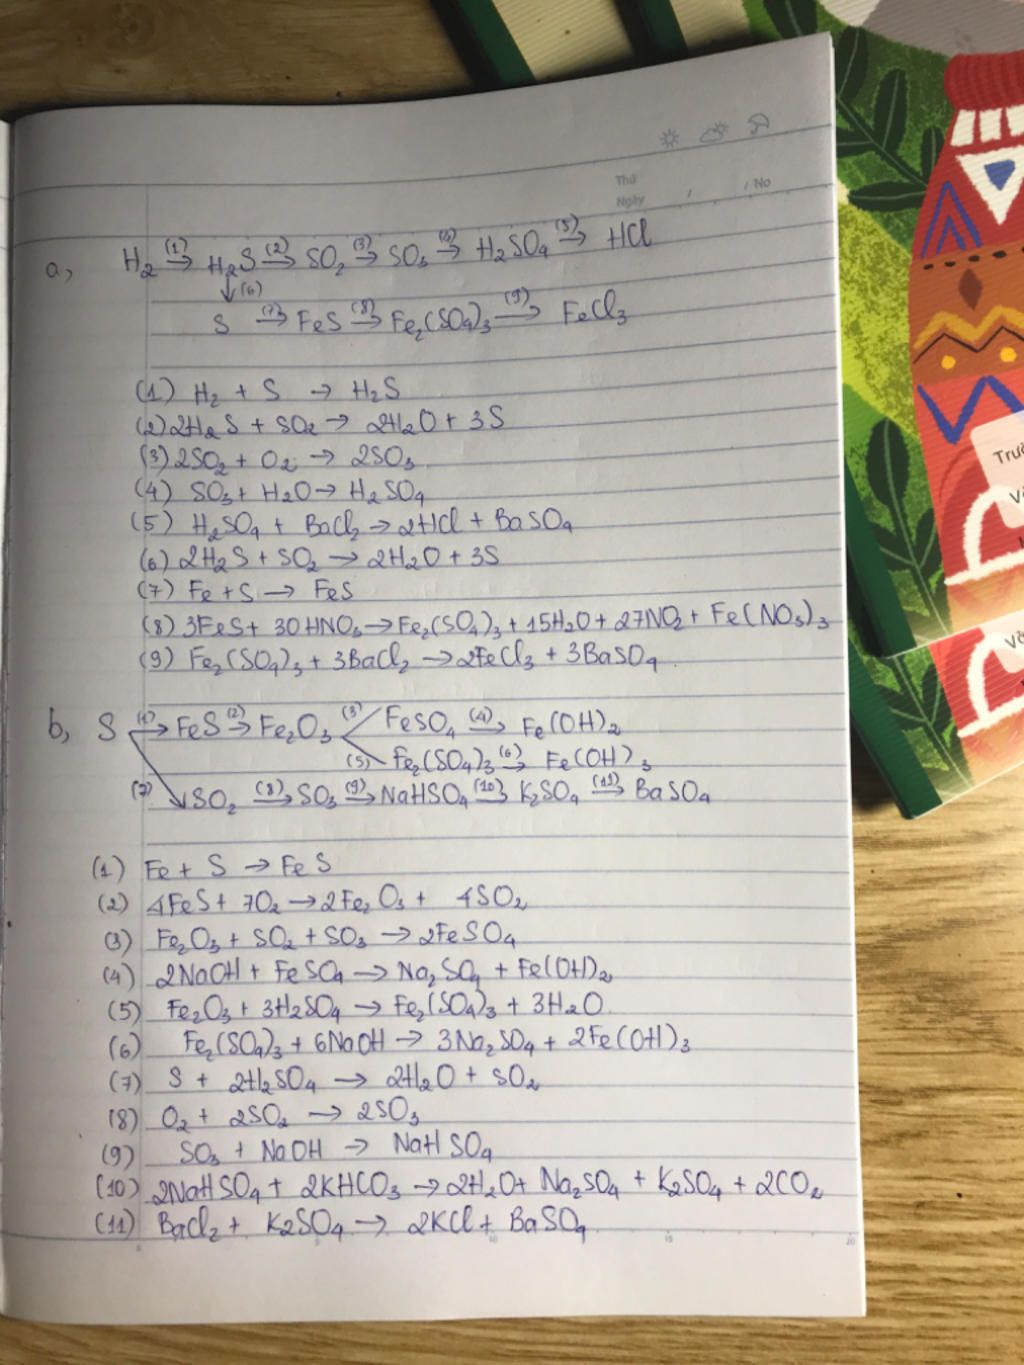 Thứ
Ngày / / No
a, H₂ (1)→ H₂S (2)→ SO₂ (3)→ SO₃ (4)→ H₂SO₄ (5)→ HCl
↓(6)
S (7)→ FeS (8)→ Fe₂(SO₄)₃ (9)→ FeCl₃
(1) H₂ + S → H₂S
(2) 2H₂S + SO₂ → 2H₂O + 3S
(3) 2SO₂ + O₂ → 2SO₃
(4) SO₃ + H₂O → H₂SO₄
(5) H₂SO₄ + BaCl₂ → 2HCl + BaSO₄
(6) 2H₂S + SO₂ → 2H₂O + 3S
(7) Fe + S → FeS
(8) 3FeS + 30HNO₃ → Fe₂(SO₄)₃ + 15H₂O + 27NO₂ + Fe(NO₃)₃
(9) Fe₂(SO₄)₃ + 3BaCl₂ → 2FeCl₃ + 3BaSO₄
b, S (1)→ FeS (2)→ Fe₂O₃ (3) FeSO₄ (4)→ Fe(OH)₂
(5) Fe₂(SO₄)₃ (6)→ Fe(OH)₃
(7) SO₂ (8)→ SO₃ (9)→ NaHSO₄ (10)→ K₂SO₄ (11)→ BaSO₄
(1) Fe + S → FeS
(2) 4FeS + 7O₂ → 2Fe₂O₃ + 4SO₂
(3) Fe₂O₃ + SO₂ + SO₃ → 2FeSO₄
(4) 2NaOH + FeSO₄ → Na₂SO₄ + Fe(OH)₂
(5) Fe₂O₃ + 3H₂SO₄ → Fe₂(SO₄)₃ + 3H₂O
(6) Fe₂(SO₄)₃ + 6NaOH → 3Na₂SO₄ + 2Fe(OH)₃
(7) S + 2H₂SO₄ → 2H₂O + SO₂
(8) O₂ + 2SO₂ → 2SO₃
(9) SO₃ + NaOH → NaHSO₄
(10) 2NaHSO₄ + 2KHCO₃ → 2H₂O + Na₂SO₄ + K₂SO₄ + 2CO₂
(11) BaCl₂ + K₂SO₄ → 2KCl + BaSO₄
5 10 15 20